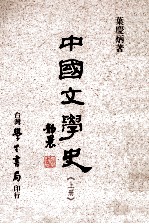 葉慶炳著
中國文學史
(上冊)
台灣學生書局印行